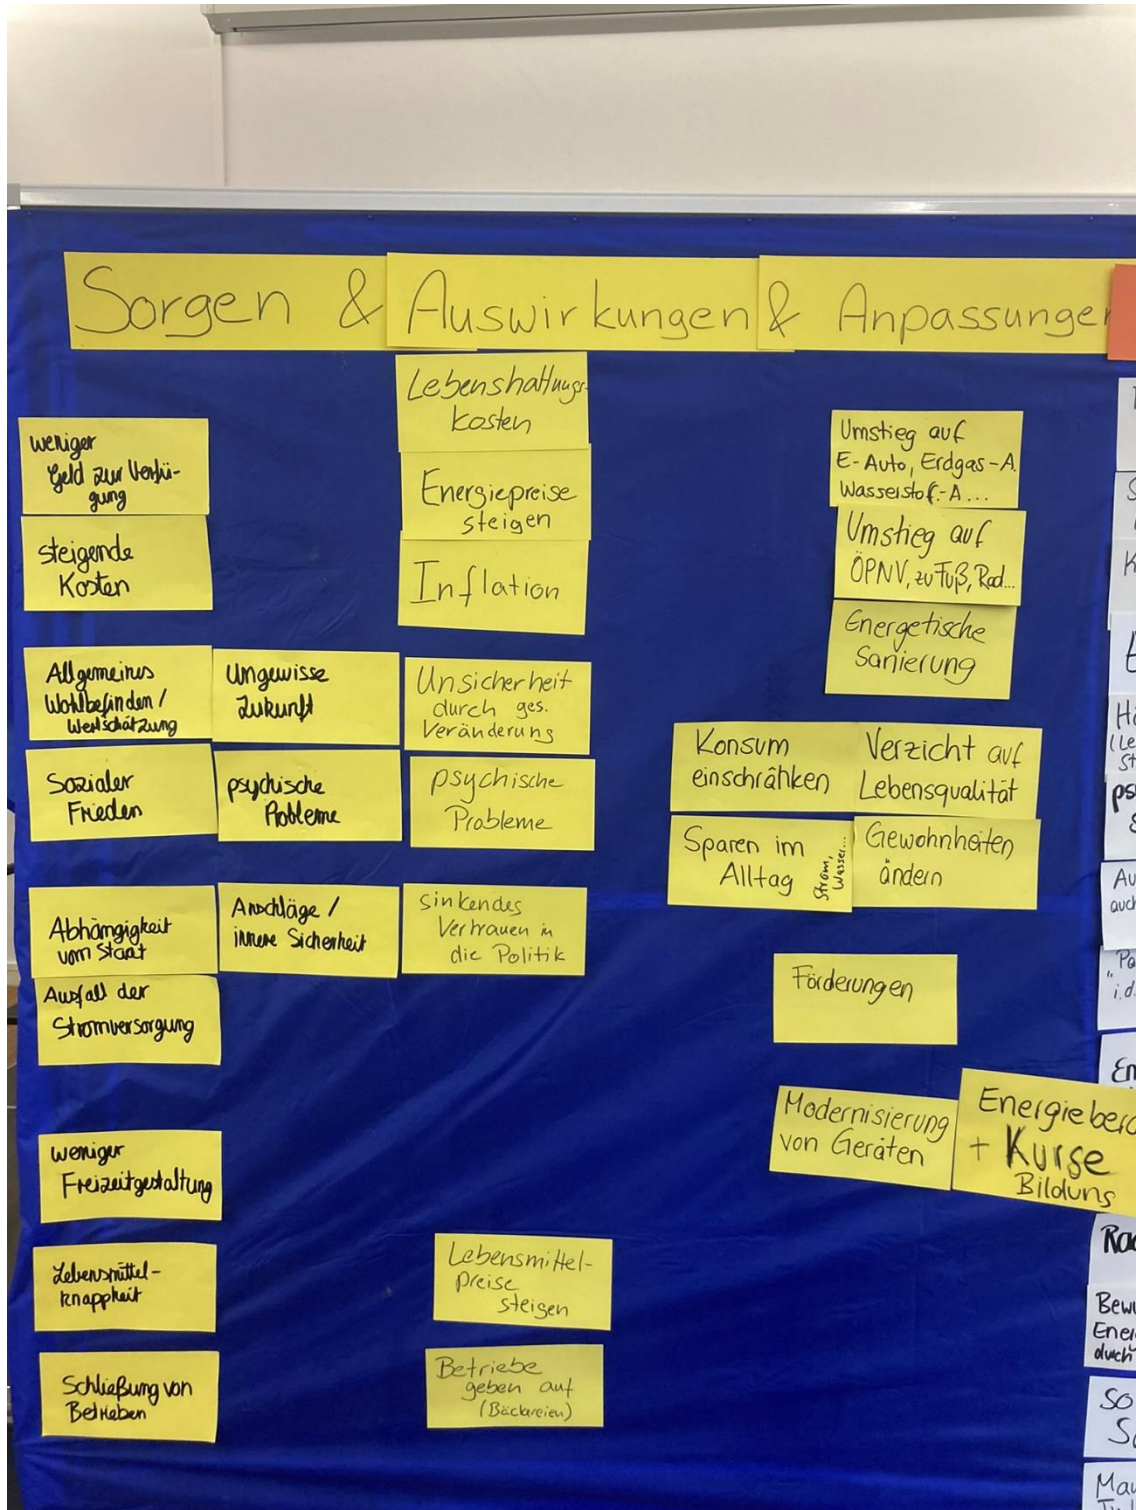 Sorgen & Auswirkungen & Anpassungen
weniger
Geld zur Verfü-
gung
steigende
Kosten
Allgemeines
Wohlbefinden /
Wertschätzung
Ungewisse
Zukunft
Sozialer
Frieden
psychische
Probleme
Abhängigkeit
vom Staat
Anschläge /
innere Sicherheit
Ausfall der
Stromversorgung
weniger
Freizeitgestaltung
Lebensmittel-
knappheit
Schließung von
Betrieben
Lebenshaltungs-
kosten
Energiepreise
steigen
Inflation
Unsicherheit
durch ges.
Veränderung
psychische
Probleme
sinkendes
Vertrauen in
die Politik
Lebensmittel-
preise
steigen
Betriebe
geben auf
(Bäckereien)
Umstieg auf
E-Auto, Erdgas-A.
Wasserstof.-A...
Umstieg auf
ÖPNV, zu Fuß, Rad...
Energetische
Sanierung
Konsum
einschränken
Verzicht auf
Lebensqualität
Sparen im
Alltag
Strom,
Wasser...
Gewohnheiten
ändern
Förderungen
Modernisierung
von Geräten
Energiebera
+ Kurse
Bildung
Bewu
Ener
durch